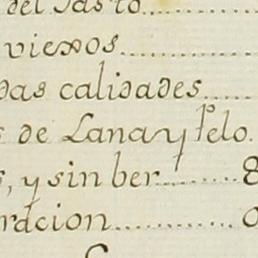 del Sasto
viexos
das calidades
s de Lana, y Pelo.
s, y sin ber 8
racion 0